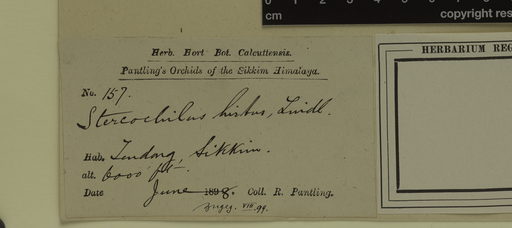 cm
copyright res
HERBARIUM REG
Herb. Hort Bot. Calcuttensis.
Pantling's Orchids of the Sikkim Himalaya.
No. 157.
Stereochilus hirtus, Lindl.
Hab. Tendong, Sikkim.
alt. 6000 ft
Date June 1898. Coll. R. Pantling.
VIII. 99.